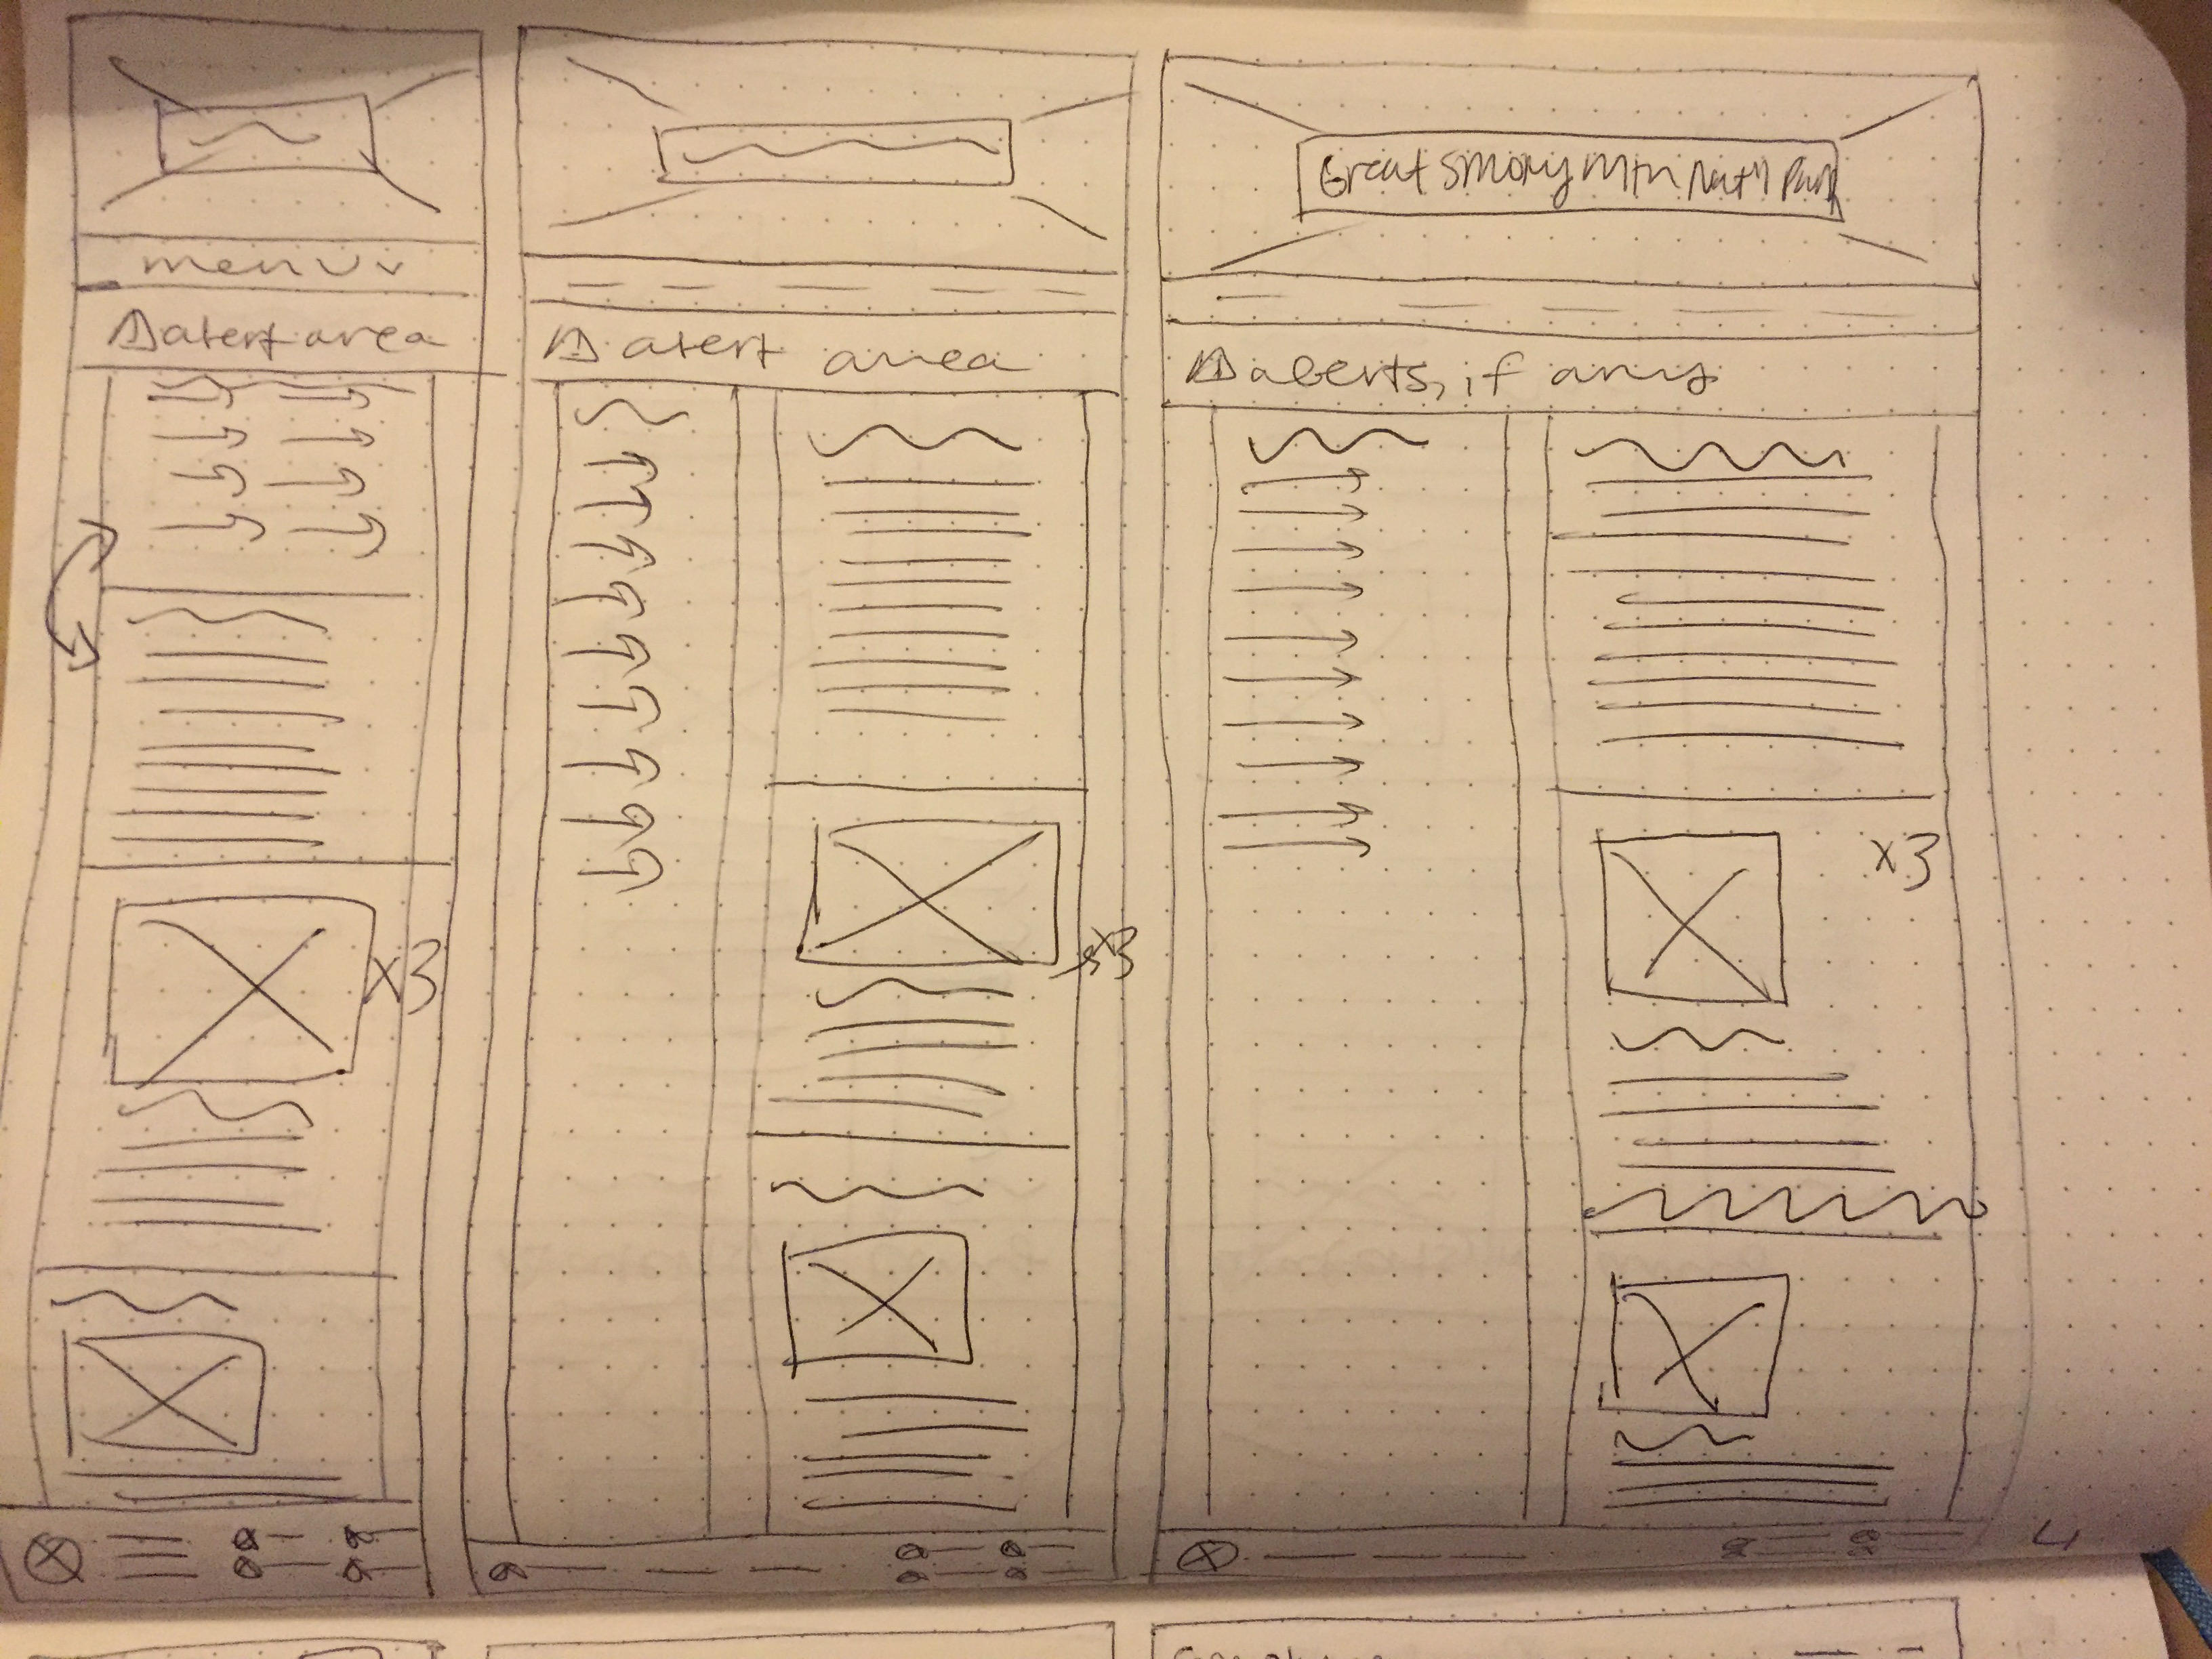 menu v
alert area
x3
alert area
x3
Great Smoky Mtn Nat'l Park
alerts, if any
x3
4